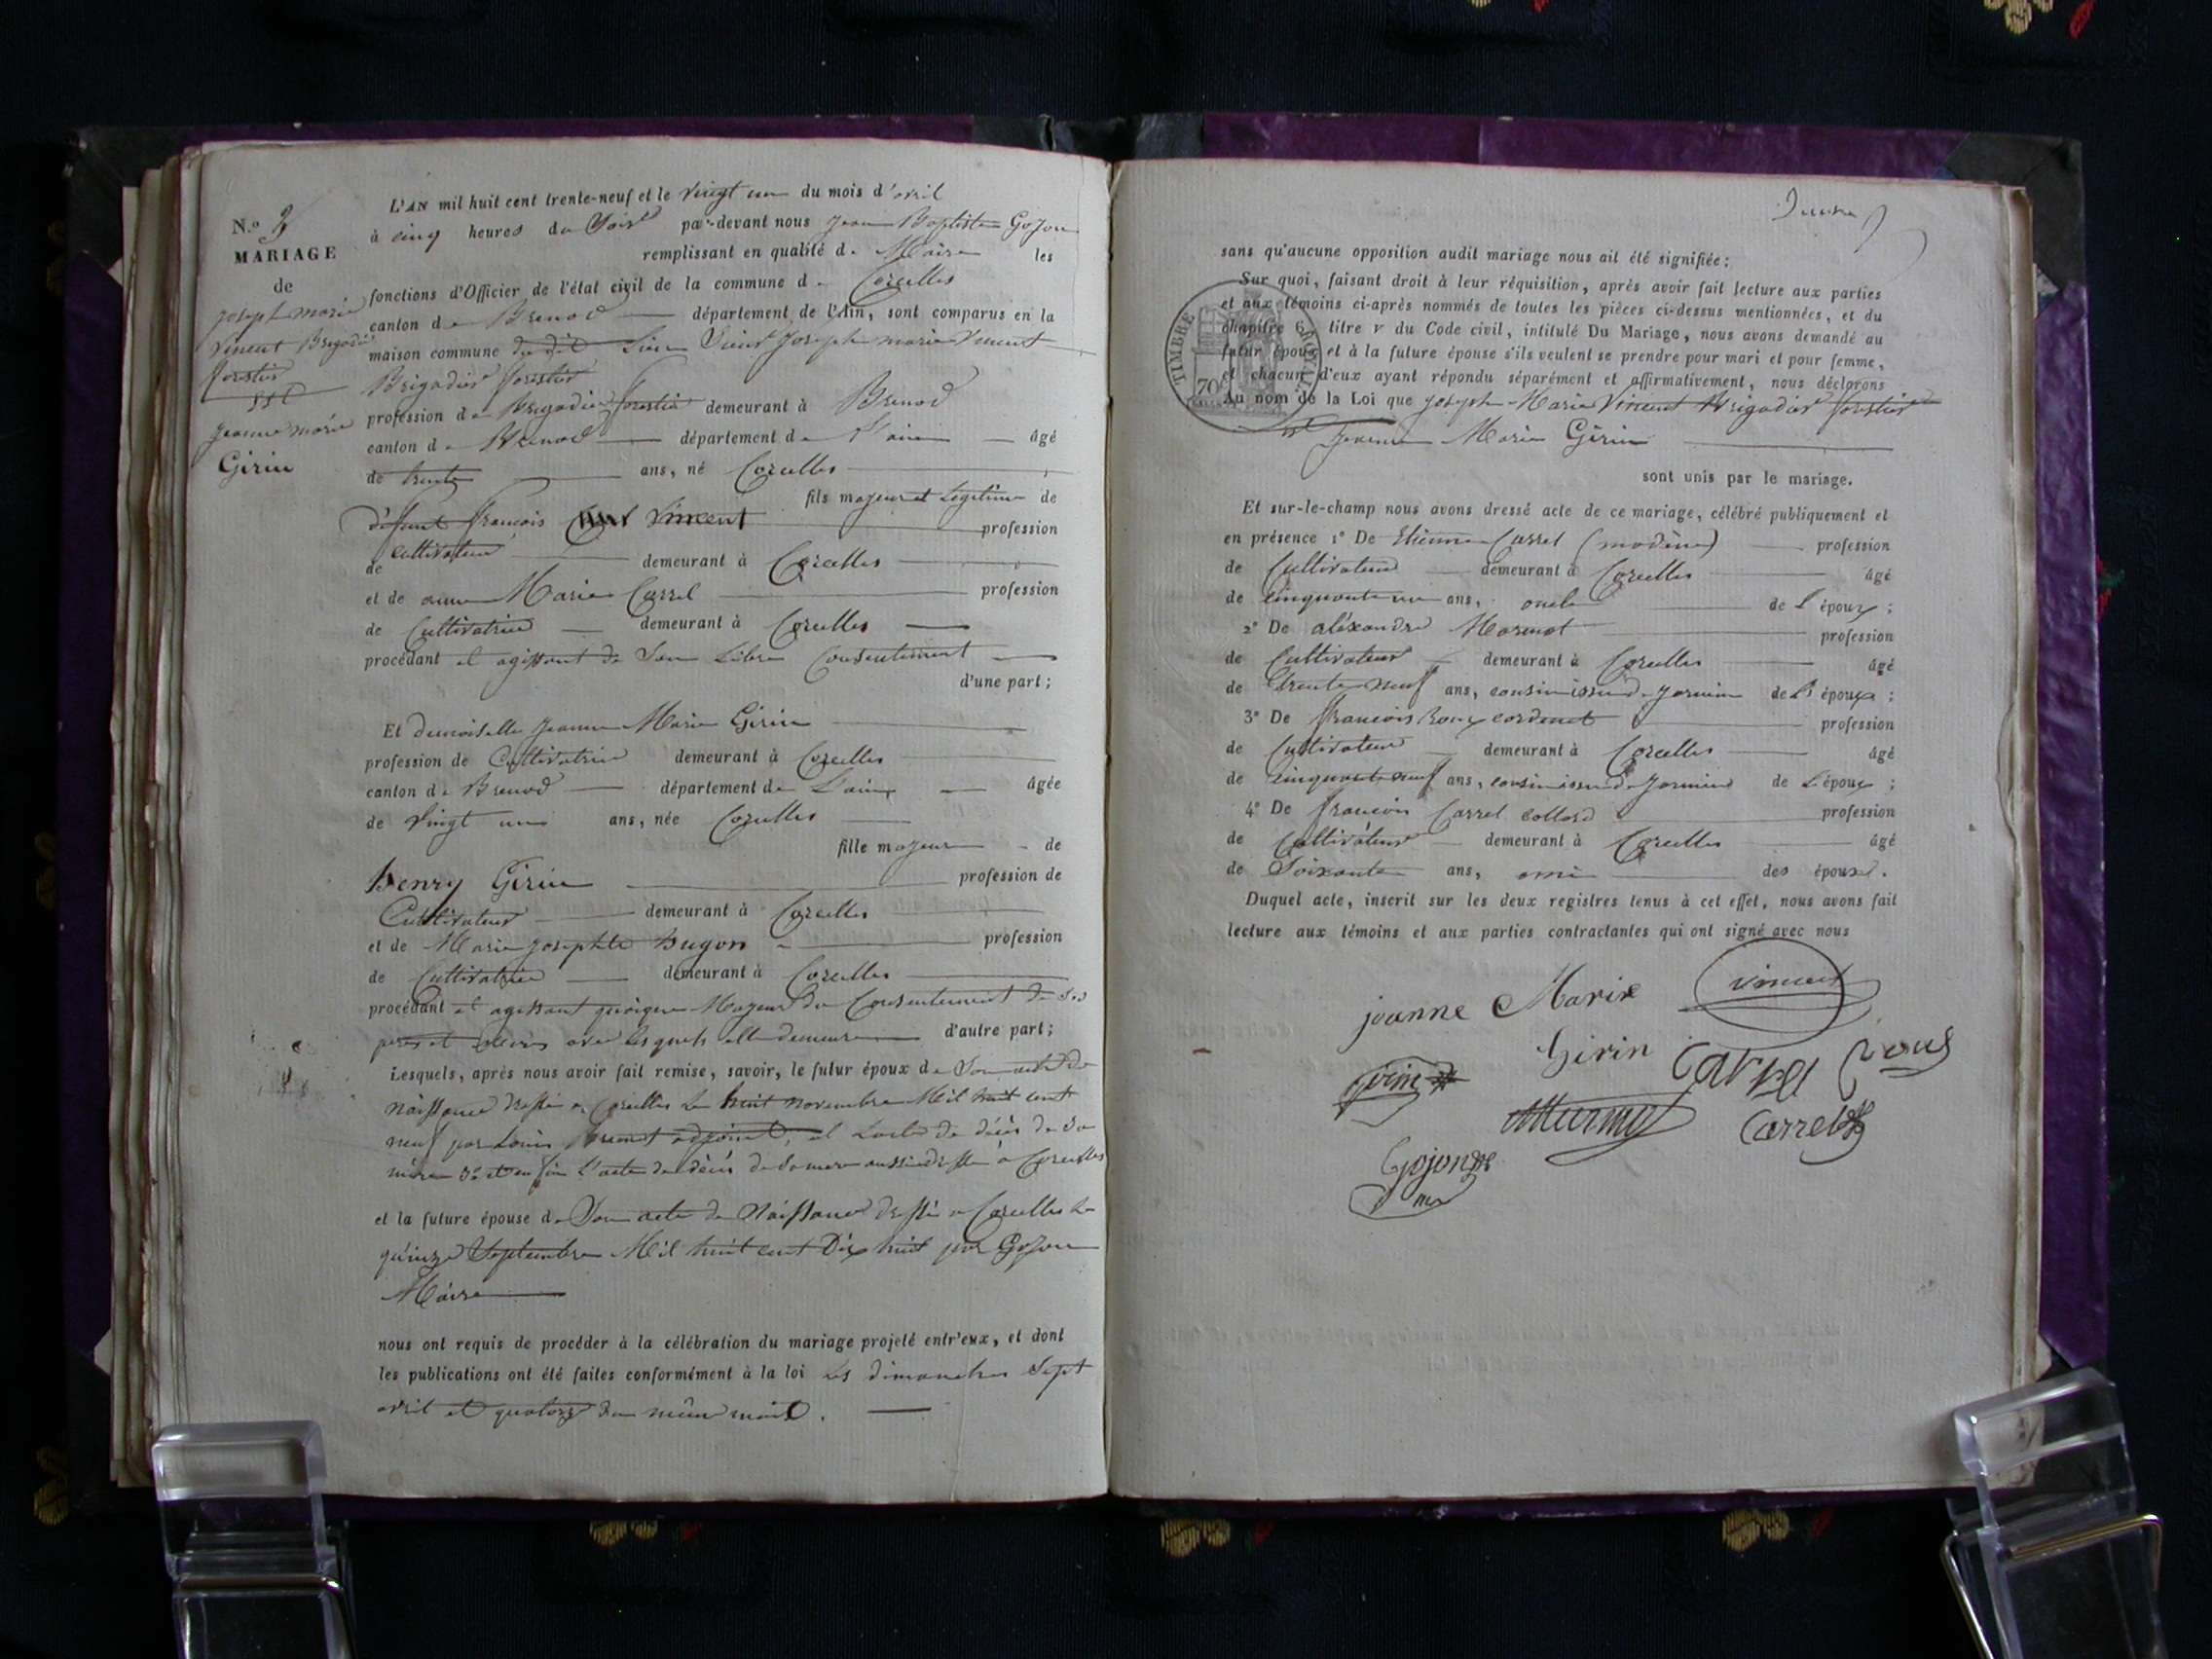 N.º 3
MARIAGE
de
joseph marie
Vincent Brigadier
forestier
et
jeanne marie
Girin
L'AN mil huit cent trente-neuf et le vingt un du mois d'avril
à cinq heures du Soir par-devant nous jean Baptiste Gojon
remplissant en qualité de Maire les
fonctions d'Officier de l'état civil de la commune de Corcelles
canton de Brenod département de l'Ain, sont comparus en la
maison commune du dit Lieu Sieur Joseph marie Vincent
Brigadier forestier
profession de Brigadier forestier demeurant à Brenod
canton de Brenod département de l'ain âgé
de trente ans, né Corcelles
fils majeur et Legitime de
défunt françois Vincent profession
de cultivateur demeurant à Corcelles
et de anne Marie Carrel profession
de Cultivatrice demeurant à Corcelles
procédant et agissant de Son Libre Consentement
d'une part;
Et demoiselle jeanne Marie Girin
profession de Cultivatrice demeurant à Corcelles
canton de Brenod département de L'ain âgée
de vingt un ans, née Corcelles
fille majeure de
henry Girin profession de
Cultivateur demeurant à Corcelles
et de Marie josephte hugon profession
de Cultivatrice demeurant à Corcelles
procédant et agissant quoique Majeure du Consentement de Ses
peres et meres avec lesquels elle demeure d'autre part;
Lesquels, après nous avoir fait remise, savoir, le futur époux de Son acte de
naissance dressé a Corcelles Le huit novembre Mil huit cent
neuf par Louis adjoint, et L'acte de décès de Son
L'acte de décès de Sa mere aussi dressé a Corcelles
et la future épouse de Son acte de Naissance dressé a Corcelles Le
quinze Septembre Mil huit cent Dix huit par Gojon
Maire
nous ont requis de procéder à la célébration du mariage projeté entr'eux, et dont
les publications ont été faites conformément à la loi Les dimanches Sept
avril et quatorze du même mois.
sans qu'aucune opposition audit mariage nous ait été signifiée;
Sur quoi, faisant droit à leur réquisition, après avoir fait lecture aux parties
et aux témoins ci-après nommés de toutes les pièces ci-dessus mentionnées, et du
chapitre 6, titre v du Code civil, intitulé Du Mariage, nous avons demandé au
futur époux et à la future épouse s'ils veulent se prendre pour mari et pour femme,
et chacun d'eux ayant répondu séparément et affirmativement, nous déclarons
Au nom de la Loi que joseph Marie Vincent Brigadier forestier
et jeanne Marie Girin
sont unis par le mariage.
TIMBRE ROYAL
70
Et sur-le-champ nous avons dressé acte de ce mariage, célébré publiquement et
en présence 1º De Etienne Carrel (modère) profession
de Cultivateur demeurant à Corcelles âgé
de Cinquante un ans, oncle de L'époux;
2º De aléxandre Mermet profession
de Cultivateur demeurant à Corcelles âgé
de trente neuf ans, cousin issu de germain de L'époux;
3º De francois Roux cordenet profession
de Cultivateur demeurant à Corcelles âgé
de Cinquante neuf ans, cousin issu de germain de L'époux;
4º De francois Carrel collard profession
de Cultivateur demeurant à Corcelles âgé
de Soixante ans, ami des époux.
Duquel acte, inscrit sur les deux registres tenus à cet effet, nous avons fait
lecture aux témoins et aux parties contractantes qui ont signé avec nous
jeanne Marie Vincent
Girin Carrel Roux
Girin
Mermet Carrel
Gojon